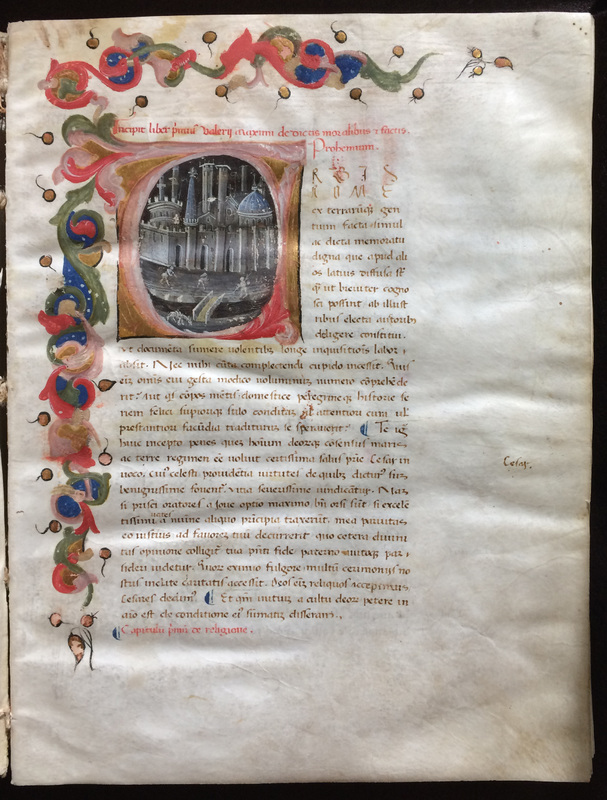 Incipit liber primus Valerij maximi de dictis moralibus & factis.
Prohemium.
R B I S
R O M E
ex terrarūqȝ gen
tium facta simul
ac dicta memoratu
digna que apud ali
os latius diffusa st̄
q̄ ut breuiter cogno
sci possint ab illust
ribus electa auctorib
deligere constitui.
ut documēta sumere volentibȝ longe inquisitiōis labor
absit. Nec mihi cūcta complectendi cupido incessit. Quis
eīȝ omīs eui gesta modico voluminuȝ numero cōprehēde
rit? Aut qs cōpos mētis domestice peregrineqȝ historie se
riem felici supiorȝ stilo conditaȝ attentiori cura ul'
prestantiori facūdia traditurūȝ se sperauerit? Te igȝ
huic incepto penes queȝ hoīum deorȝqȝ cōsensus maris
ac terre regimen eē voluit certissima salus pr̄ie Cesar in
uoco. cuiȝ celesti prouidētia virtutes de quibȝ dicturȝ suȝ
benignissime fouentȝ. vitia seuerissime uindicātur. Naȝ
si prisci oratores a Ioue optio maximo bn̄ orsi sūt. si excelē
tissimi vates a nuīne aliquo prīcipia traxerūt. mea paruitas
eo iustius ad fauorȝ tuū decurrerit quo cetera diuini
tas opinione colligitȝ tua pn̄ti fide paterno auitoqȝ
sideri uidetur. quorȝ eximio fulgore multū cerimonijs no
stris inclite claritatis accessit. Deos eīȝ reliquos accepimus
Cesares dedimȝ. Et qm̄ initiuȝ a cultu deorȝ petere in
aīo est de conditione eiȝ sumatiȝ disseram.
Cesar.
Capitulū primū de religione.